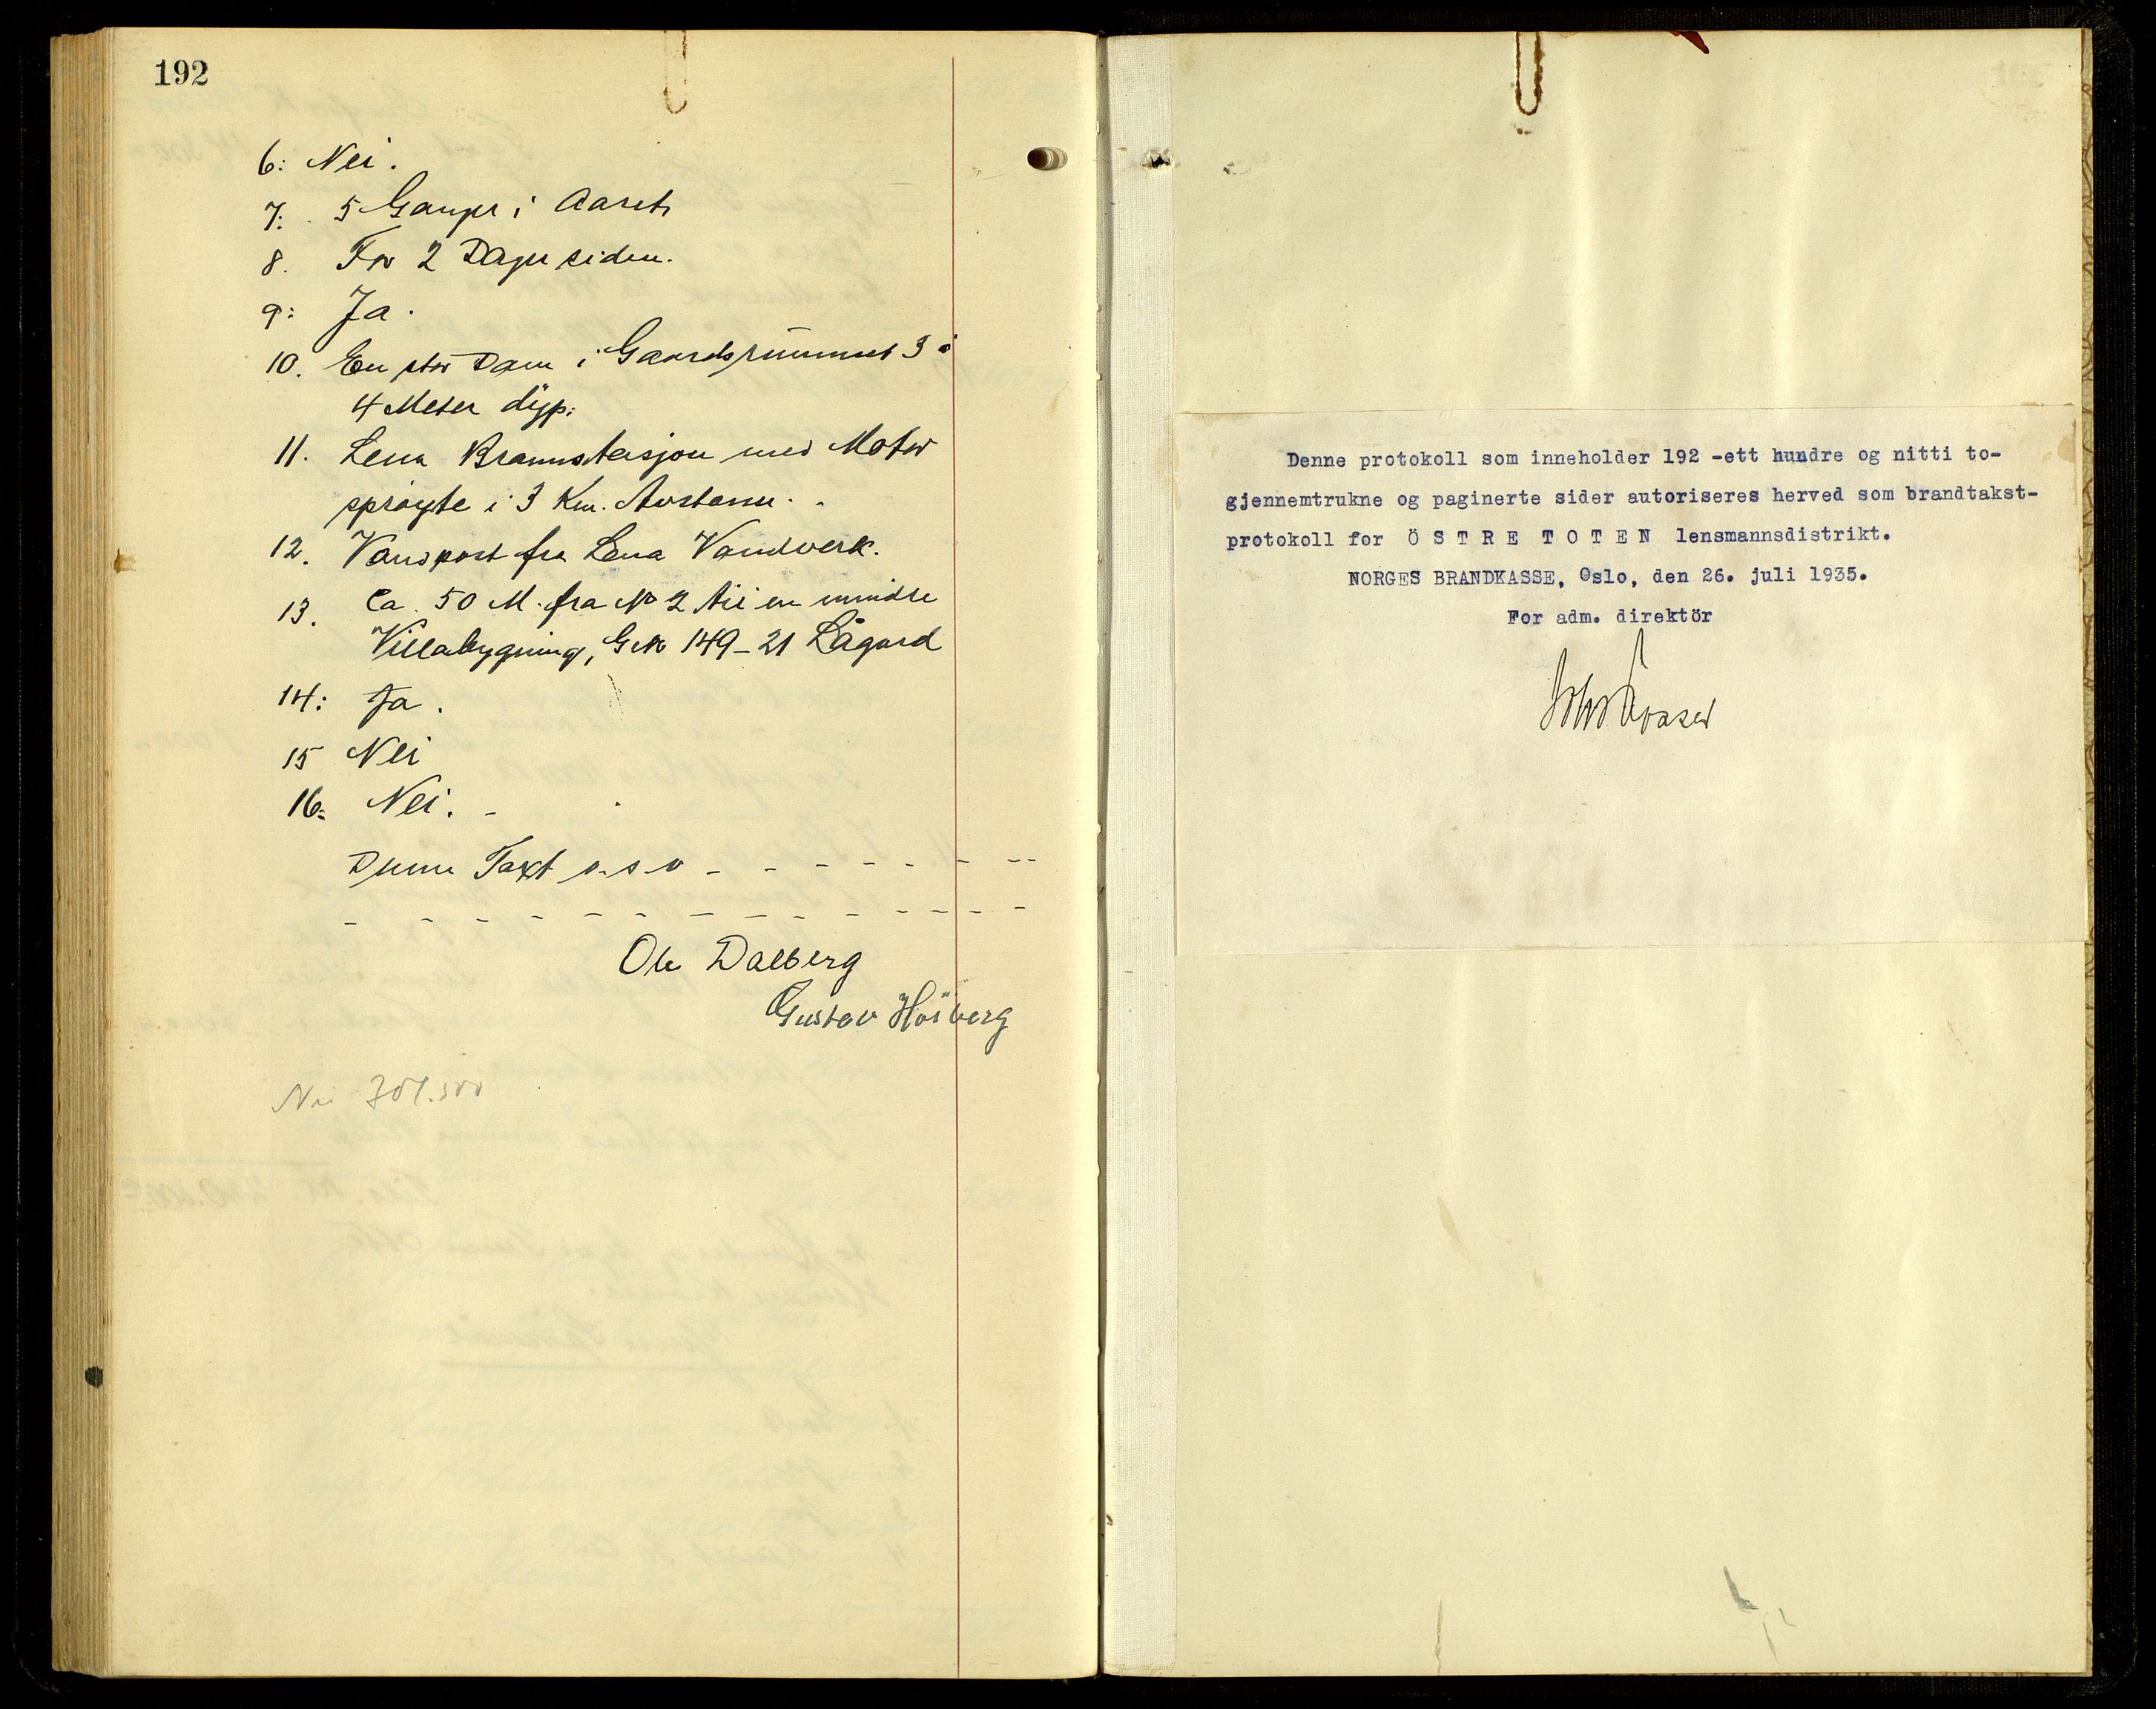 192
6: Nei.
7: 5 Ganger i Aaret
8. For 2 Dager siden.
9: Ja.
10. En stor Dam i Gaardsrummet 3 a
4 Meter dyp.
11. Lena Brannstasjon med Motor
sprøyte i 3 Km. Avstann.
12. Vandpost fra Lena Vandverk.
13. Ca. 50 M. fra No 2 til en mindre
Villabygning, G.No 149-21 Lågard
14: Ja.
15 Nei
16: Nei. -
Denne Taxt o.s.v - - - - - - -
- - - - - - - - - - - - - -
Ole Dalberg
Gustav Høiberg
Denne protokoll som inneholder 192 -ett hundre og nitti to-
gjennemtrukne og paginerte sider autoriseres herved som brandtakst-
protokoll for Ö S T R E T O T E N lensmannsdistrikt.
NORGES BRANDKASSE, Oslo, den 26. juli 1935.
For adm. direktör